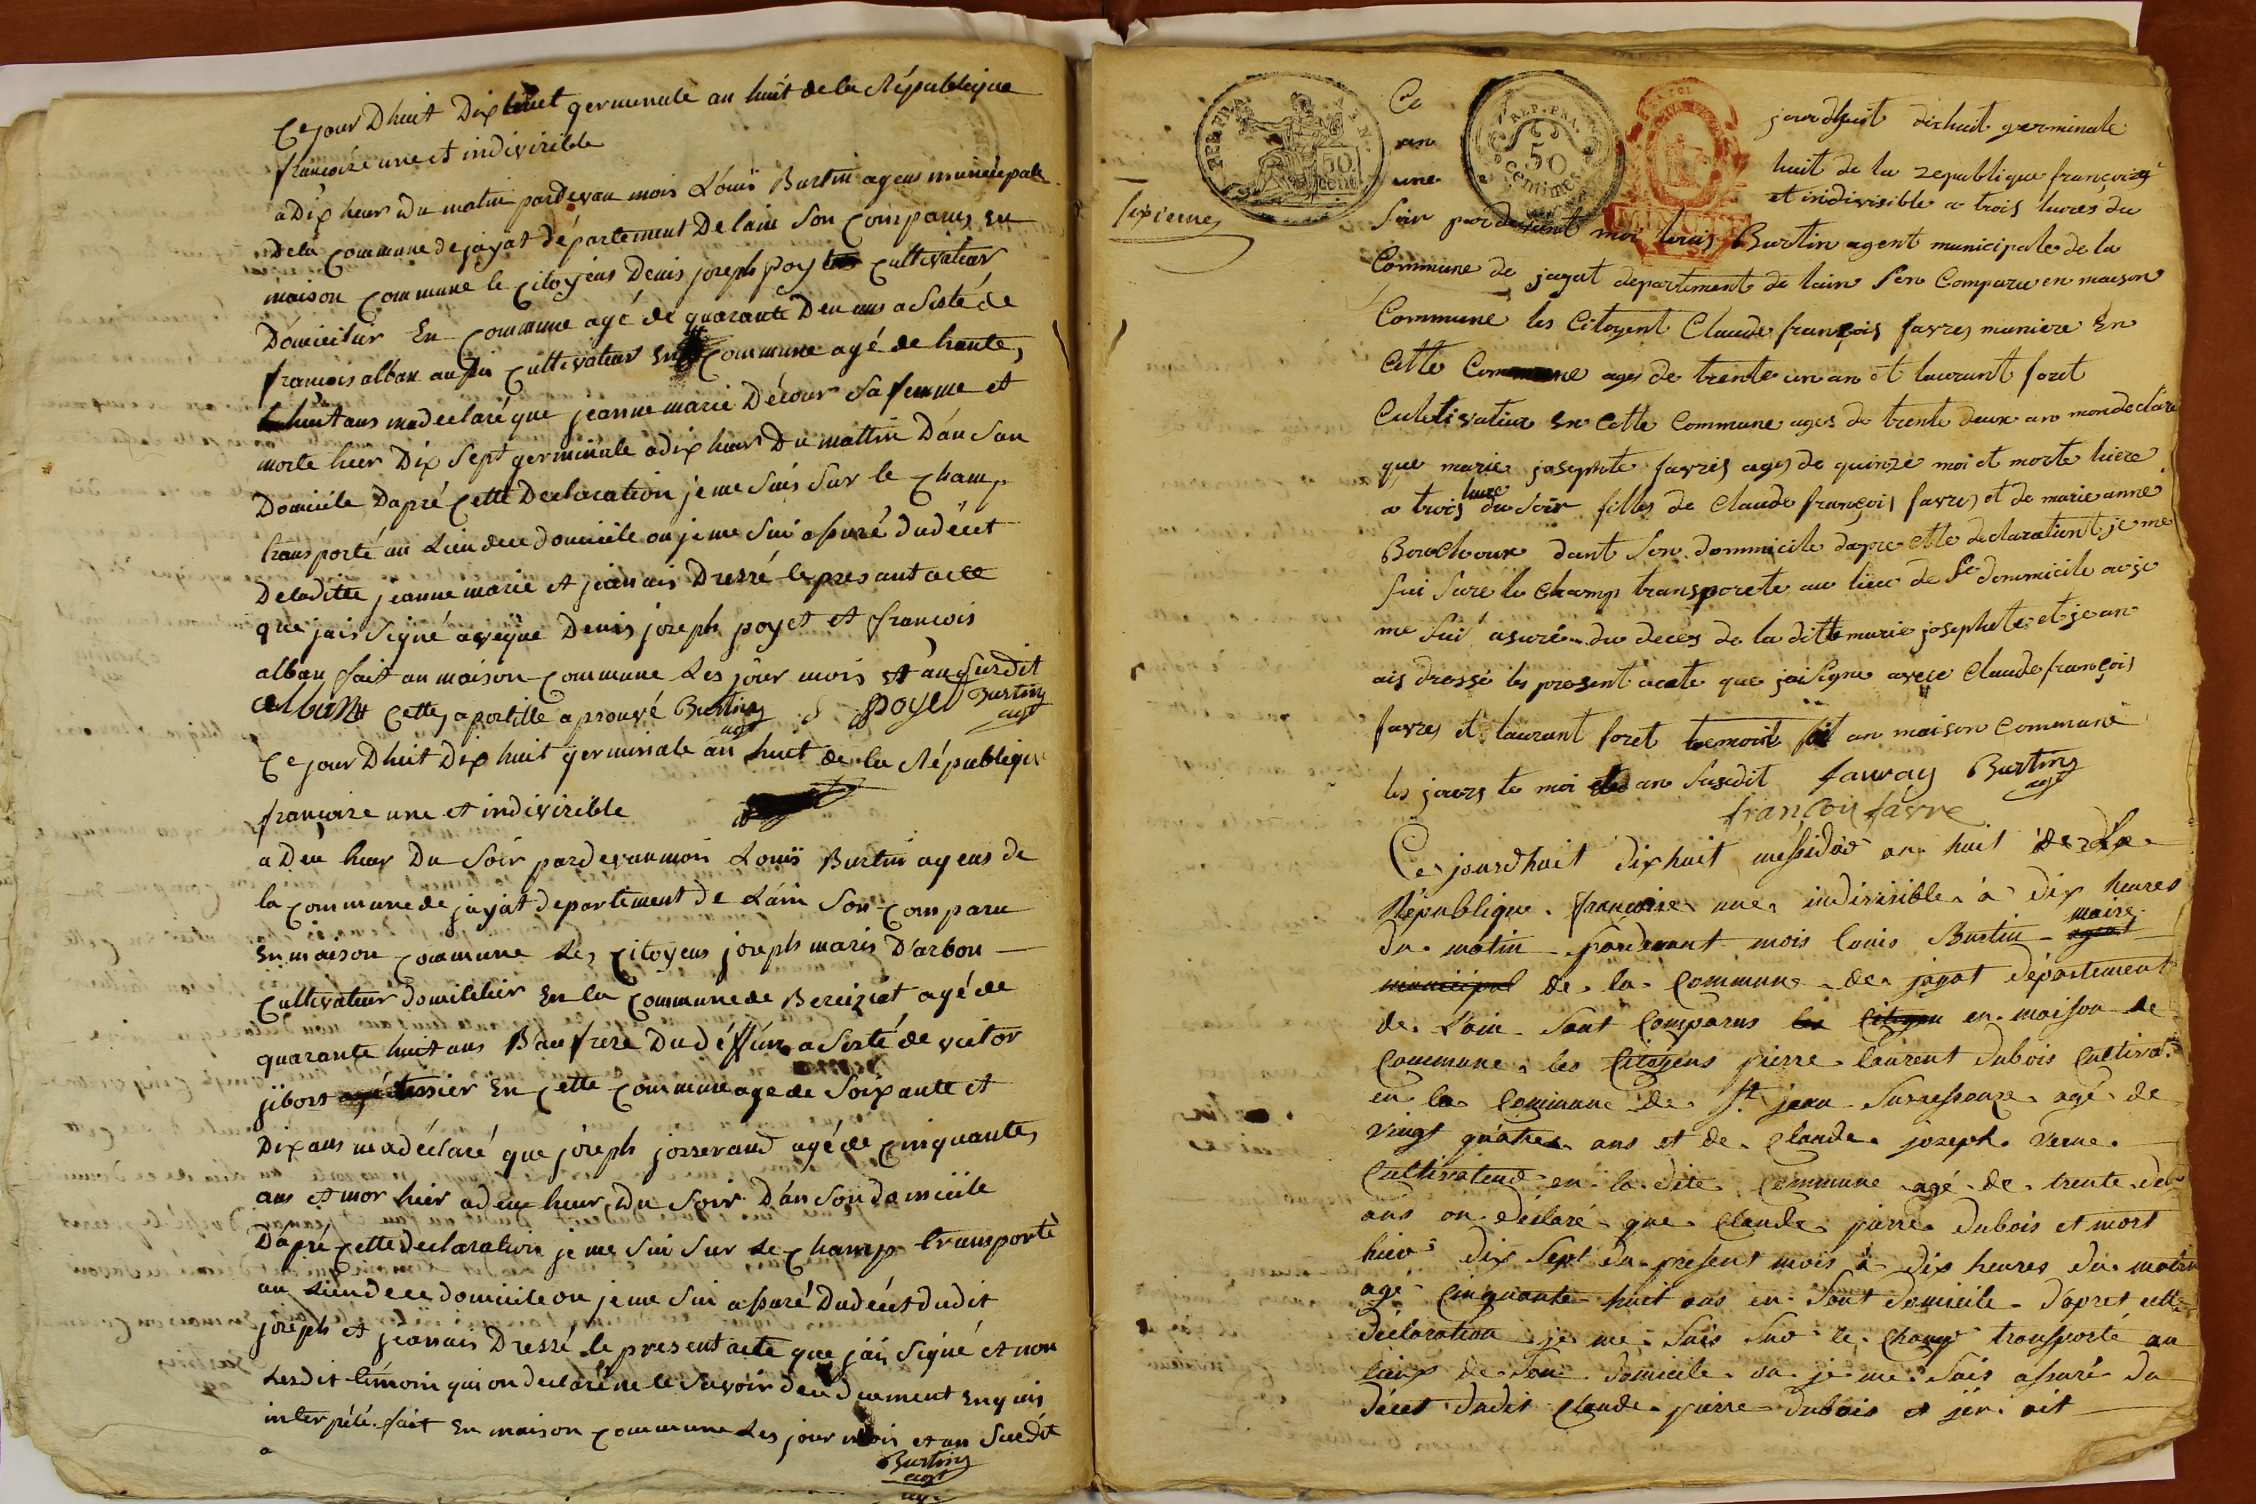 Ce jour Dhuit Dix huit germinale an huit de la République
françoize une et indivizible
a Dix heur du matin pardevan mois Louis Burtin agens municipale
De la commune de jayat département De lain Son Comparus en
maison commune le citoyens Denis joseph poyt cultivateur
Domicilier En commune agé de quarante Deu ans asisté de
francois alban ausi cultivateur En commune agé de trante
huit ans ma declaré que jeanne marie Décour sa femme et
morte hier Dix Sept germinale a dix heur Du mattin Dan son
Domicile Dapré Cette Declaration je me Suis Sur le champ
transporté au Lieu de ce domicile ou je me Sui assuré dudécet
De laditte jeanne marie et jeanais Dressé le presant acte
que jais Signé aveque Denis joseph poyet et francois
alban fait an maison commune Les jour mois et an Surdit
alban Cette apostille aprouvé Burtin agt poyet Burtin agt
Ce jour Dhuit Dix huit germinale an huit de la République
françoize une et indivizible
a Deu heur Du Soir pardevan mois Louis Burtin agens de
la commune de jayat departement de Lain Son Comparu
En maison commune Les citoyens joseph marie Darbon
cultivateur domicilier En la commune de Bereiziat agé de
quarante huit ans Beau frere Du déffun asisté de victor
jibort tessier En cette commune age de Soixante et
Dix ans ma déclaré que joseph josserand agé de cinquante
ans et mor hier a deu heur Du Soir Dan Son domicile
Dapré cette declaration je me Sui Sur Le champ transporté
au Lieu de ce domicile ou je me Sui assuré Dudécet dudit
joseph et jeanais Dressé le present acte que jais Signé et non
Lesdit témoin qui on declaré ne le Savoir deu ducment Enquis
interpélé fait En maison commune Les jour mois et an Susdit
Burtin
agt
REP. FRA. 50 cent.
REP. FRA. 50 centimes
Sixieme
Ce jourdhuit dixhuit germinale
an huit de la republique françoize
une et indivisible a trois hures du
Soir par devant moi louis Burtin agent municipale de la
Commune de jayat departement de lain Son Comparu en maison
Commune les Citoyent Claude françois favres muniere En
Cette Commune ages de trente un an et laurant foret
Culetivateur En Cette Commune ages de trente deux an mon declare
que marie josephete favres ages de quinze moi et morte hiere
a trois hure du Soir filles de Claude françois favres et de marie anne
Bouchoux dant Son dommicile dapre cette declarationt je me
Sui Sure le Champ transporete au lieu de Se dommicile ou je
me Sui asuré du deces de la ditte marie josephete et je an
ais dressé les present acate que jai Signe avece Claude françois
favres et laurant foret temoint fit an maison Commune
les jours le moi et an Susdit fauray Burtin agt
françois favre
Ce jourdhuit dix huit messidor an huit de La
République françoise une indivisible à dix heures
du matin pardevant mois louis Burtin agent maire
municipal de la Commune de jayat département
de Lain Sont Comparus les Citoyen en maison de
Commune les Citoyens pierre laurent dubois Cultivat.
en la Commune de St jean Surressouze agé de
vingt quatre ans et de Claude joseph Verne
Cultivateur en la dite Commune agé de trente deu
ans on déclaré que Claude pierre dubois et mort
hier dix Sept du présent mois à dix heures du matin
agé Cinquante huit ans en Sont domicile dapret cette
déclaration je me Suis Sur le champ transporté au
lieux de Son domicile ou je me Suis assuré du
décet dudit Claude pierre dubois et jén ait